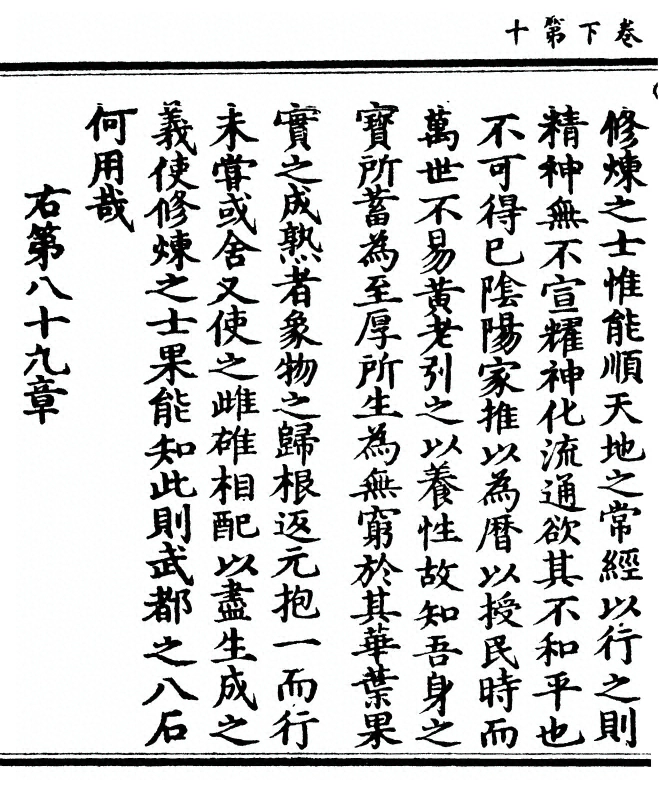 卷下第十
修煉之士惟能順天地之常經以行之則
精神無不宣耀神化流通欲其不和平也
不可得已陰陽家推以為曆以授民時而
萬世不易黃老引之以養性故知吾身之
寶所蓄為至厚所生為無窮於其華葉果
實之成熟者象物之歸根返元抱一而行
未嘗或舍又使之雌雄相配以盡生成之
義使修煉之士果能知此則武都之八石
何用哉
右第八十九章